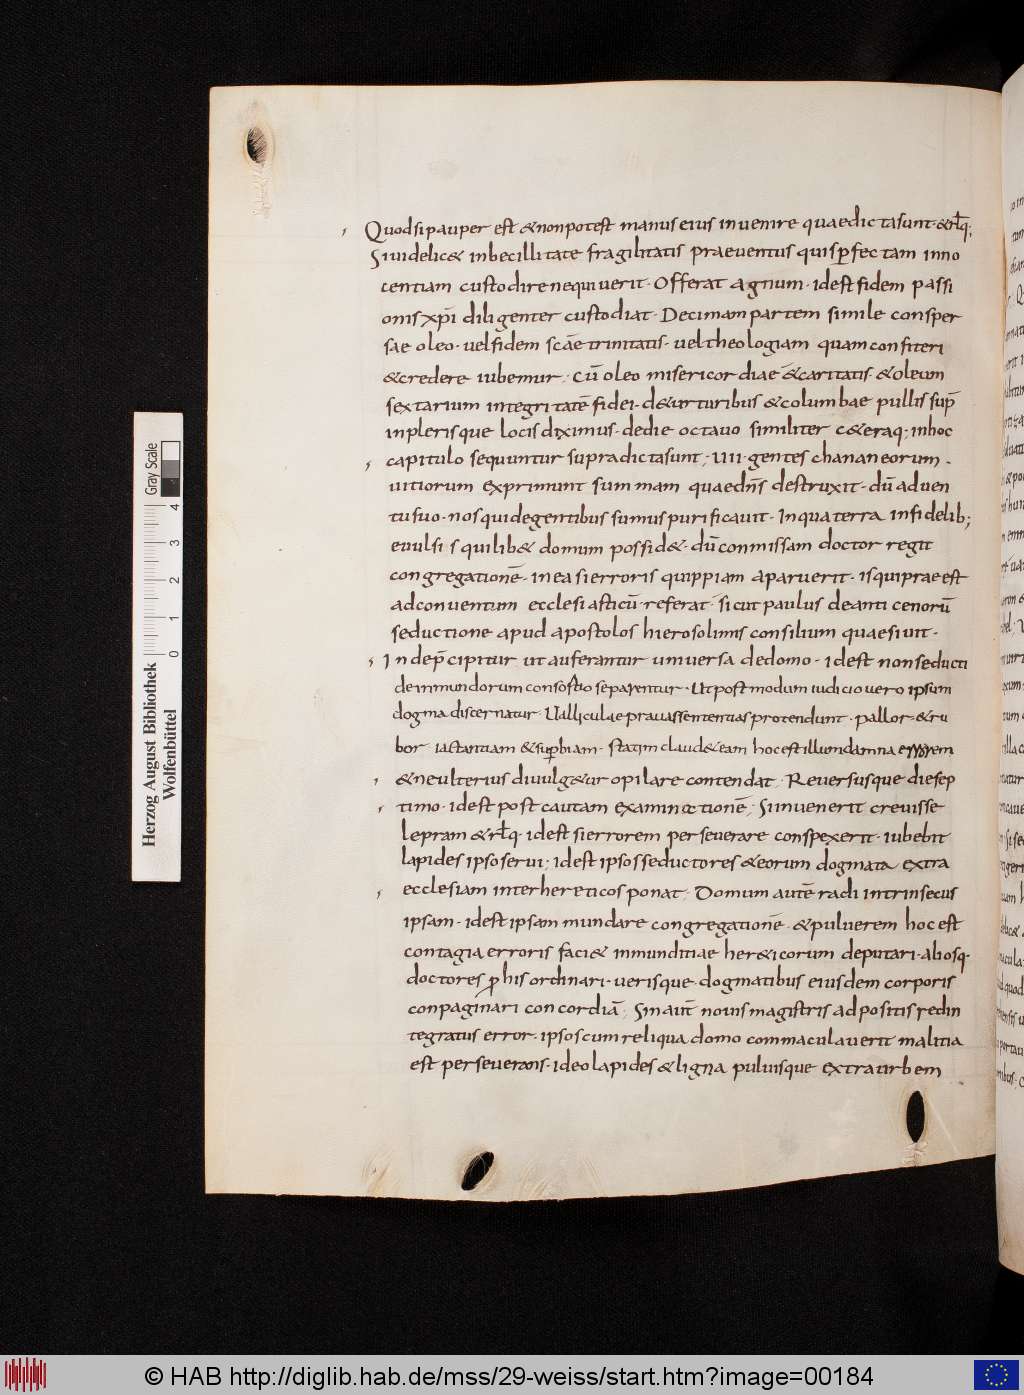 Quodsipauper est &nonpotest manus eius inuenire quaedictasunt·&rłq;
Siuidelic& inbecillitate fragilitatis praeuentus quisꝑfectam inno
centiam custodirenequiuerit· Offerat agnum· idestfidem passi
onisxp̄i diligenter custodiat· Decimampartem simile consper
sae oleo· uelfidem scāe trinitatis· ueltheologiam quamconfiteri
&credere iubemur; Cū oleo misericordiae &caritatis· &oleum
sextarium integritatē fidei· d&urturibus &columbae pullis sup̄
inplerisque locis diximus· dedie octauo similiter c&eraq; inhoc
capitulo sequuntur supradictasunt; uiii· gentes chananeorum·
uitiorum exprimunt summam quaedn̄s destruxit· dū aduen
tusuo· nosquidegentibus sumuspurificauit· Inquaterra infidelib;
euulsis quilib& domum possid&· dūconmissam doctor regit
congregationē· ineasierroris quippiam aparuerit· isquipraeest
adconuentum ecclesiasticū referat· sicut paulus deanticenorū
seductione apud apostolos hierosolimis consilium quaesiuit·
Indep̄cipitur utauferantur uniuersa dedomo· idest nonseducti
deinmundorum consortio separentur· Utpostmodum iudiciouero ipsum
dogma discernatur· Ualliculaeprauassententiasprotendunt· pallor·&ru
bor iactantiam &suꝑbiam· statim claud&eam hocestillumdamna errorem
&neulterius diuulg&ur opilare contendat; Reuersusque diesep
timo· idest post cautam examinationē; Siinuenerit creuisse
lepram &rłq· idest sierrorem perseuerare conspexerit· iubebit
lapides ipsoserui; idest ipsosseductores &eorum dogmata extra
ecclesiam interhereticos ponat; Domum autē radi intrinsecus
ipsam· idestipsam mundare congregationē &puluerem hocest
contagia erroris faci& inmunditiae her&icorum deputari· aliosq·
doctores ꝓ his ordinari· uerisque dogmatibus eiusdem corporis
conpaginari concordiā; Sin aūt nouis magistris adpositis redin
tegratus error· ipsoscumreliqua domo commaculauerit malitia
est perseuerans· ideolapides &ligna puluisque extraurbem
Herzog August Bibliothek
Wolfenbüttel
0 1 2 3 4
Gray Scale
© HAB http://diglib.hab.de/mss/29-weiss/start.htm?image=00184